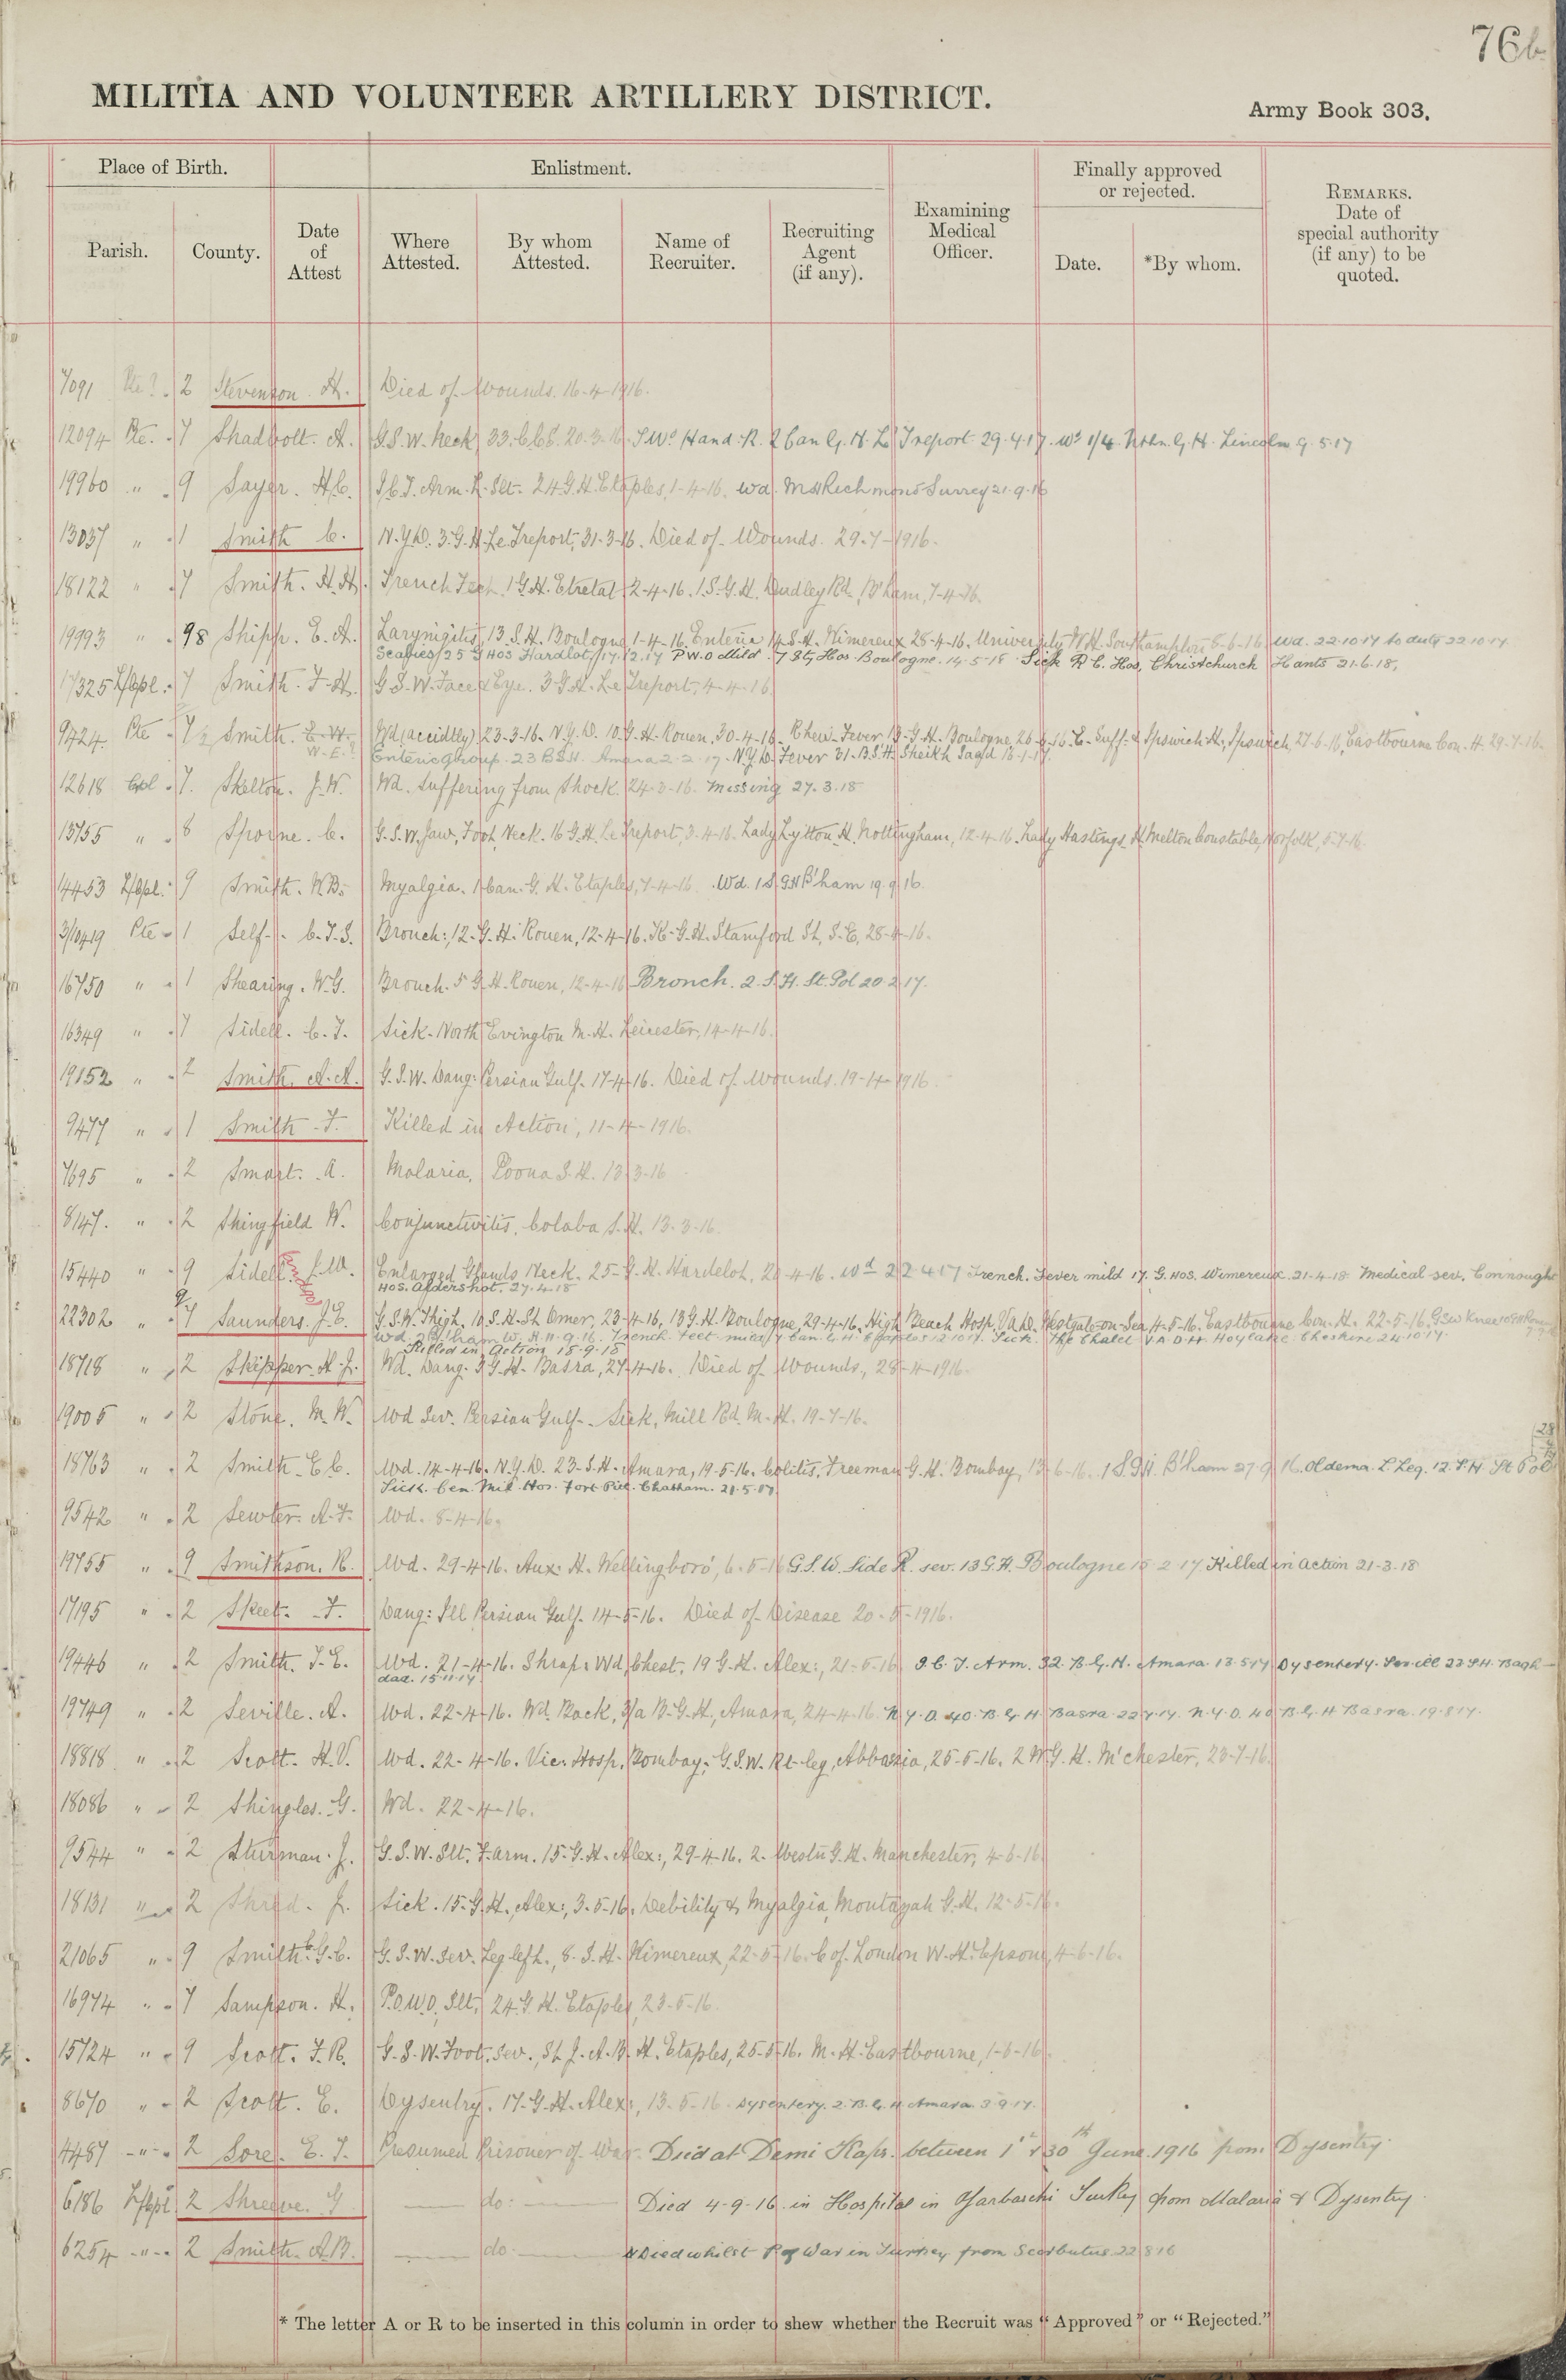 76b
MILITIA AND VOLUNTEER ARTILLERY DISTRICT.
Army Book 303.
Place of Birth.
Enlistment.
Finally approved or rejected.
Parish.
County.
Date of Attest
Where Attested.
By whom Attested.
Name of Recruiter.
Recruiting Agent (if any).
Examining Medical Officer.
Date.
*By whom.
REMARKS. Date of special authority (if any) to be quoted.
7091 Pte? 2 Stevenson. H. Died of Wounds. 16-4-1916.
12094 Pte. 7 Shadbolt. A. G.S.W. Neck, 33. C.C.S. 20-3-16. S Wd Hand. R. 2 Can G. H. Le Treport 29.4.17. Wd 1/4 Nthn. G. H. Lincoln 9.5.17
19960 " 9 Sayer. H.C. I.C.T. Arm. R. Slt. 24 G.H. Etaples, 1-4-16. Wd. Richmond Surrey 21.9.16
13037 " 1 Smith C. N.Y.D. 3. G.H. Le Treport, 31-3-16. Died of Wounds. 29-7-1916.
18122 " 7 Smith. H.H. Trench Feet, 1 G.H. Etretat 2-4-16. 1.S.G.H. Dudley Rd., B'ham, 7-4-16.
19993 " 98 Shipp. E. A. Laryngitis, 13. S.H. Boulogne, 1-4-16, Enteric 14 S.H. Wimereux 25-4-16. University W.H. Southampton 6-6-16 Wd. 22.10.17 to duty 22.10.17.
Scabies 25 G Hos Hardelot, 17.12.17 P.W.O Mild. 7 Sty Hos Boulogne. 14-5-18 Sick R C. Hos, Christchurch Hants 21.6.18,
17325 L/Cpl. 7 Smith. F.H. G.S.W. Face & Eye. 3 G.H. Le Treport, 4-4-16
9424 Pte 7/2 Smith. E.W. Wd (accidtly) 23-3-16. N.Y.D. 10. G.H. Rouen, 30-4-16. Rheu. Fever 13. G.H. Boulogne, E. Suff. & Ipswich H., Ipswich, 27-6-16, Eastbourne Con. H. 29-7-16.
W. E.? Enteric Group. 23 B.S.H. Amara 2.2.17. N.Y.D. Fever 31. B.S.H. Sheikh Saad
12618 Cpl 7. Skelton. J.W. Wd. Suffering from Shock. 24-3-16. Missing 27.3.18
13755 " 8 Sporne. C. G.S.W. Jaw, Foot, Neck. 16 G.H. Le Treport, 3-4-16. Lady Lytton H. Nottingham, 12-4-16. Lady Hastings H. Melton Constable, Norfolk, 5-7-16.
14453 L/Cpl. 9 Smith. W.B. Myalgia. 1 Can. G. H. Etaples, 7-4-16. Wd. 1 S G H B'ham 19.9.16.
3/10419 Pte 1 Self. C.T.S. Bronch:, 12. G.H. Rouen, 12-4-16. K. G.H. Stamford St, S.E, 28-4-16.
16750 " 1 Shearing. W.G. Bronch. 5 G.H. Rouen, 12-4-16 Bronch. 2. S.H. St. Pol 20.2.17.
16349 " 7 Sidell. C. T. Sick. North Evington M.H. Leicester, 14-4-16.
19152 " 2 Smith. A.A. G.S.W. Dang: Persian Gulf. 17-4-16. Died of Wounds. 19-4-1916.
9477 " 1 Smith. F. Killed in Action, 11-4-1916.
7695 " 2 Smart. A. Malaria, Poona S.H. 13-3-16
8147. " 2 Shingfield W. Conjunctivitis, Colaba S.H. 13-3-16.
15440 " 9 Sidell. J.W. Enlarged Glands Neck. 25-G.H. Hardelot, 20-4-16. Wd 22 4 17 Trench. Fever mild 17. G. Hos. Wimereux. 21-4-18 Medical sev. Connought
Hos. Aldershot. 27.4.18
22302 " 7 Saunders. J.E. G.S.W. Thigh. 10 S.H. St Omer, 23-4-16, 13 G.H. Boulogne, 29-4-16, High Beach Hosp, V.A.D. Westgate-on-Sea, 4-5-16. Eastbourne Con. H. 22-5-16.
Wd. 2 B'ham W. H. 11.9.16. Trench Feet mild 7 Can. G. H. Etaples 12.10.17. Sick. The Chalet V.A.D.H. Hoylake Cheshire 24.10.17.
Killed in action 18-9-18
18718 " 2 Skipper. H.J. Wd. Dang. 3 G.H. Basra, 27-4-16. Died of Wounds, 28-4-1916.
19005 " 2 Stone. M.W. Wd Sev. Persian Gulf. Sick, Mill Rd. M.H. 19-7-16.
18763 " 2 Smith. E C. Wd. 14-4-16. N.Y.D. 23-S.H. Amara, 19-5-16. Colitis, Freeman G.H. Bombay, 13-6-16. 1 S.G.H. B'ham 27-9-16. Oldema. L. Leg. 12. S.H St Pol
Sick. Gen. Mil. Hos. Fort Pitt. Chatham. 21.5.17
9542 " 2 Sewter. A.F. Wd. 8-4-16.
19755 " 9 Smithson. R. Wd. 29-4-16. Aux. H. Wellingboro', 6-5-16 G.S.W. Side R. sev. 13 G.H. Boulogne 15 2 17 Killed in action 21-3-18
17195 " 2 Skeet. F. Dang: Ill Persian Gulf. 14-5-16. Died of Disease 20-5-1916.
19446 " 2 Smith. T.E. Wd. 21-4-16. Shrap: Wd, Chest. 19 G.H. Alex:, 21-5-16 I.C.T. Arm. 32. B.G.H. Amara. 13-5-17 Dysentery. Ser ill 23 S.H. Bagh
dad. 15-11-17.
19749 " 2 Seville. A. Wd. 22-4-16. Wd. Back, 3/a B.G.H., Amara, 24-4-16. N.Y.D. 40. B.G.H. Basra N.Y.D. 40 B.G.H Basra. 19.8.17.
18818 " 2 Scott. H.V. Wd. 22-4-16. Vic. Hosp. Bombay; G.S.W. Rt leg, Abbassia, 25-5-16. 2 W.G.H. M'chester, 23-7-16.
18086 " 2 Shingles. G. Wd. 22-4-16.
9544 " 2 Sturman. J. G.S.W. Slt. F.arm. 15. G.H. Alex:, 29-4-16. 2. Westn G.H. Manchester, 4-6-16
18131 " 2 Shred. J. Sick. 15. G.H. Alex:, 3-5-16. Debility & Myalgia, Montazah G.H. 12-5-16.
21065 " 9 Smith. G.C. G.S.W. Sev. Leg left., 8. S.H. Wimereux, 22-5-16. C of London W.H. Epsom, 4-6-16.
16974 " 7 Sampson. H. P.O.W.O, Slt. 24 G.H. Etaples, 23-5-16.
15724 " 9 Scott. F.R. G.S.W. Foot. Sev., St J.A.B.H. Etaples, 25-5-16. M.H. Eastbourne, 1-6-16
8670 " 2 Scott. E. Dysentry. 17. G.H. Alex:, 13-5-16. Dysentery. 2. B.G.H. Amara 3.9.17.
4487 " 2 Sore. E. T. Presumed Prisoner of War. Died at Demi Kapr. between 1st & 30th June. 1916 from Dysentry.
6186 L/Cpl 2 Shreeve. G do: Died 4-9-16 in Hospital in Turkey from Malaria & Dysentry
6254 " 2 Smith. A.B. do. Died whilst P of War in Turkey from Scorbutus 22 8 16
* The letter A or R to be inserted in this column in order to shew whether the Recruit was "Approved" or "Rejected."